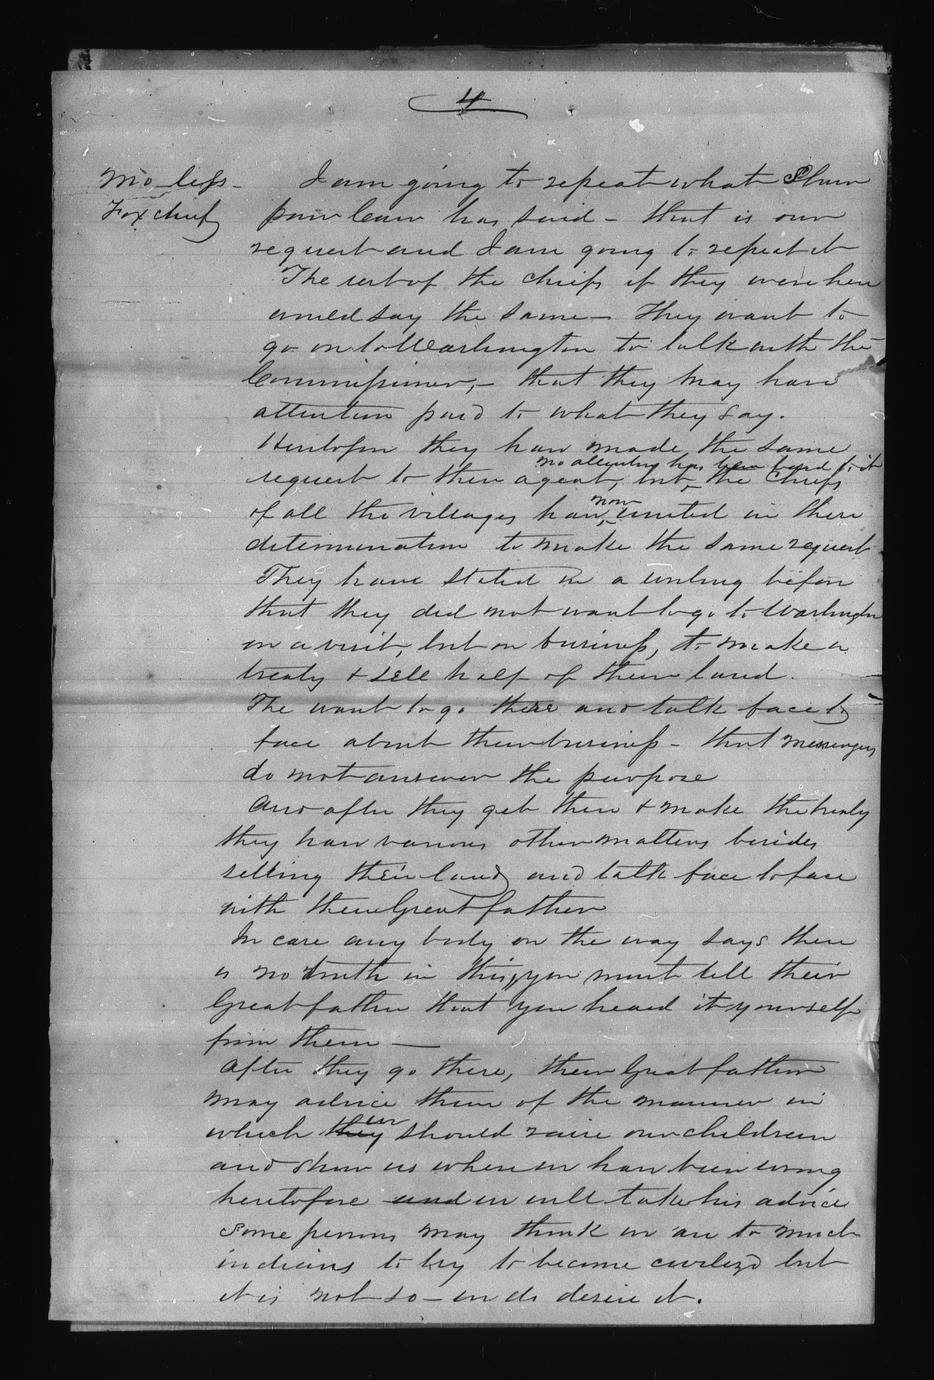 4
Mo-less-
Fox chief
I am going to repeat what Shaw
paw caw has said - that is our
request and I am going to repeat it
The rest of the chiefs if they were here
would say the same - They want to
go on to Washington to talk with the
Commissioner, - that they may have
attention paid to what they say.
Heretofore they have made the same
no attention has been paid to it
request to their agent, but, the chiefs
now
of all the villages have united in there
determination to make the same request
They have stated in a writing before
that they did not want to go to Washington
on a visit, but on business, to make a
treaty & sell half of their land.
The want to go there and talk face to
face about their business - that messengers
do not answer the purpose
And after they get there & make the treaty
they have various other matters besides
selling their land, and talk face to face
with their Great father
In case any body on the way says there
is no truth in this, you must tell their
Great father that you heard it yourself
from them -
After they go there, their Great father
may advice them of the manner in
we
which they should raise our children
and show us where we have been wrong
heretofore and we will take his advice
Some persons may think we are to much
indians to try to become civilizd but
it is not so - we do desire it.